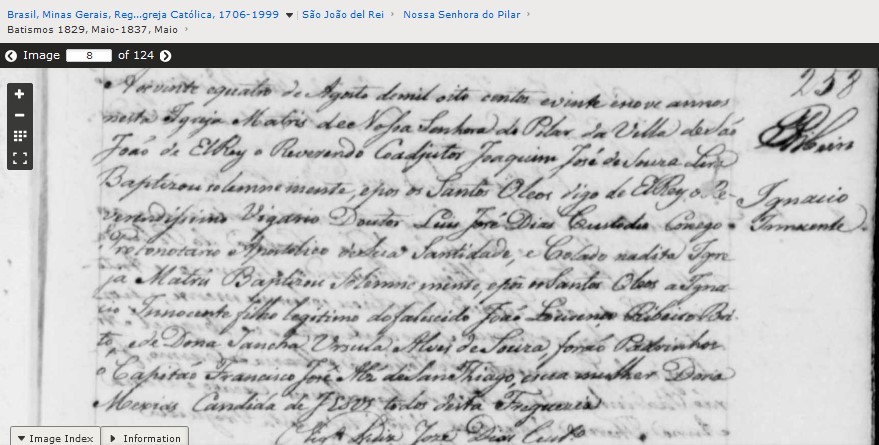 Brasil, Minas Gerais, Reg...greja Católica, 1706-1999 ▼ São João del Rei › Nossa Senhora do Pilar ›
Batismos 1829, Maio-1837, Maio ›
Image 8 of 124
258
Aos vinte equatro de Agosto demil oito centos evinte enove annos
nesta Igreja Matris de Nossa Senhora do Pilar da Villa de São
João de ElRey o Reverendo Coadjutor Joaquim José de Souza Lira
Baptizou solemnemente, epos os Santos Oleos digo de ElRey o Re-
verendissimo Vigario Doutor Luis José Dias Custodio Conego
Protonotario Apostolico desua Santidade, e Colado nadita Igre-
ja Matris Baptizou Solemnemente, epos os Santos Oleos a Igna-
cio Innocente filho legitimo do falescido João Lourenço Ribeiro Ba-
to, e de Dona Sancha Ursula Alves de Souza, forão Padrinhos
o Capitão Francisco José de San Thiago, esua mulher Dona
Mexias Candida de JESUS todos desta Freguezia
Luis José Dias Custo
Ignacio
Innocente
Image Index
Information